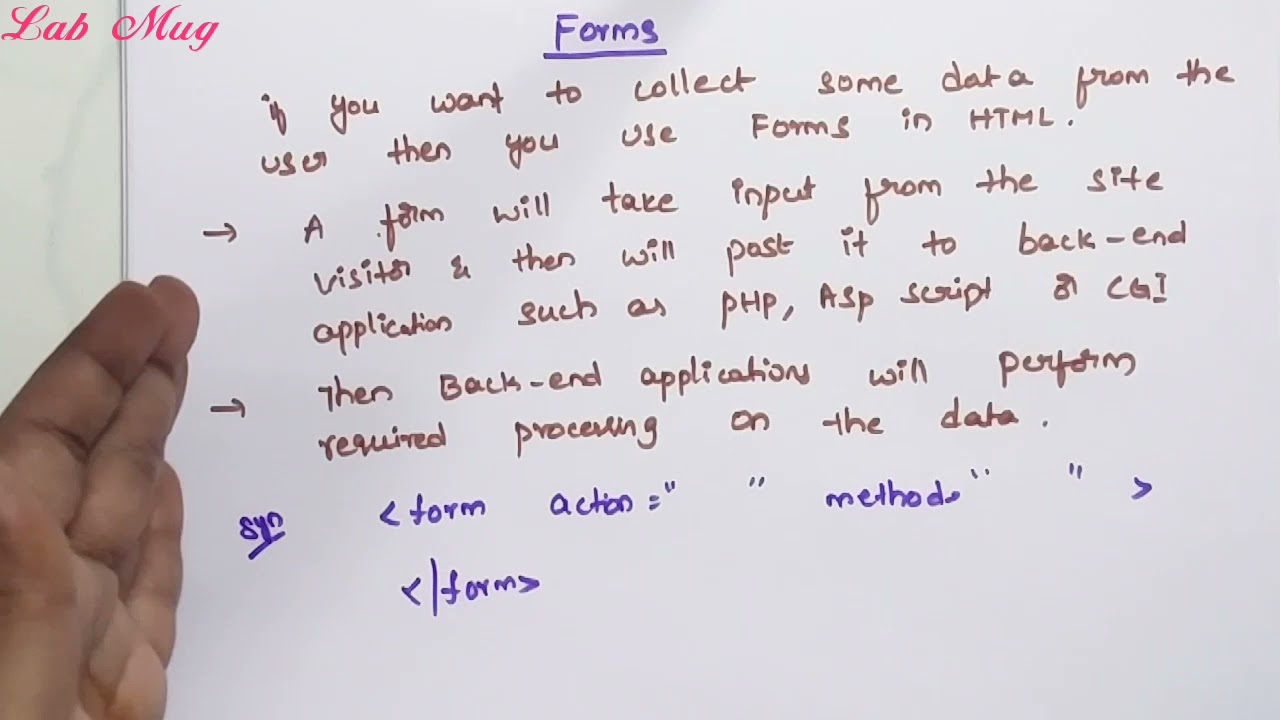 Lab Mug
Forms
if you want to collect some data from the
user then you use Forms in HTML.
→ A form will take input from the site
visitor & then will post it to back-end
application such as PHP, ASP script or CGI
→ Then Back-end applications will perform
required processing on the data.
syn <form action=" " method=" " >
</form>